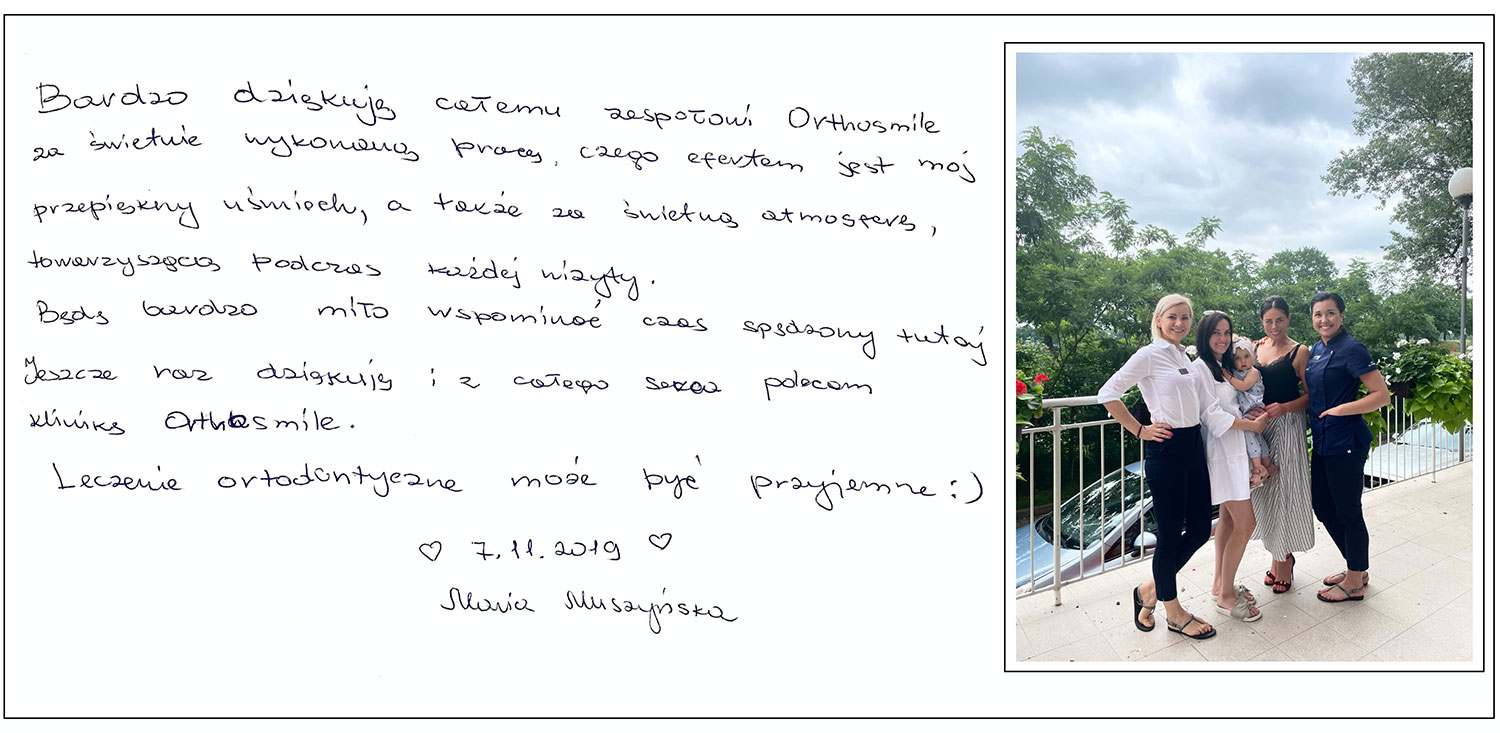 Bardzo dziękuję całemu zespołowi Orthosmile
za świetnie wykonaną pracę, czego efektem jest mój
przepiękny uśmiech, a także za świetną atmosferę,
towarzyszącą podczas każdej wizyty.
Będę bardzo miło wspominać czas spędzony tutaj
Jeszcze raz dziękuję i z całego serca polecam
klinikę Orthosmile.
Leczenie ortodontyczne może być przyjemne :)
♡ 7.11.2019 ♡
Maria Muszyńska